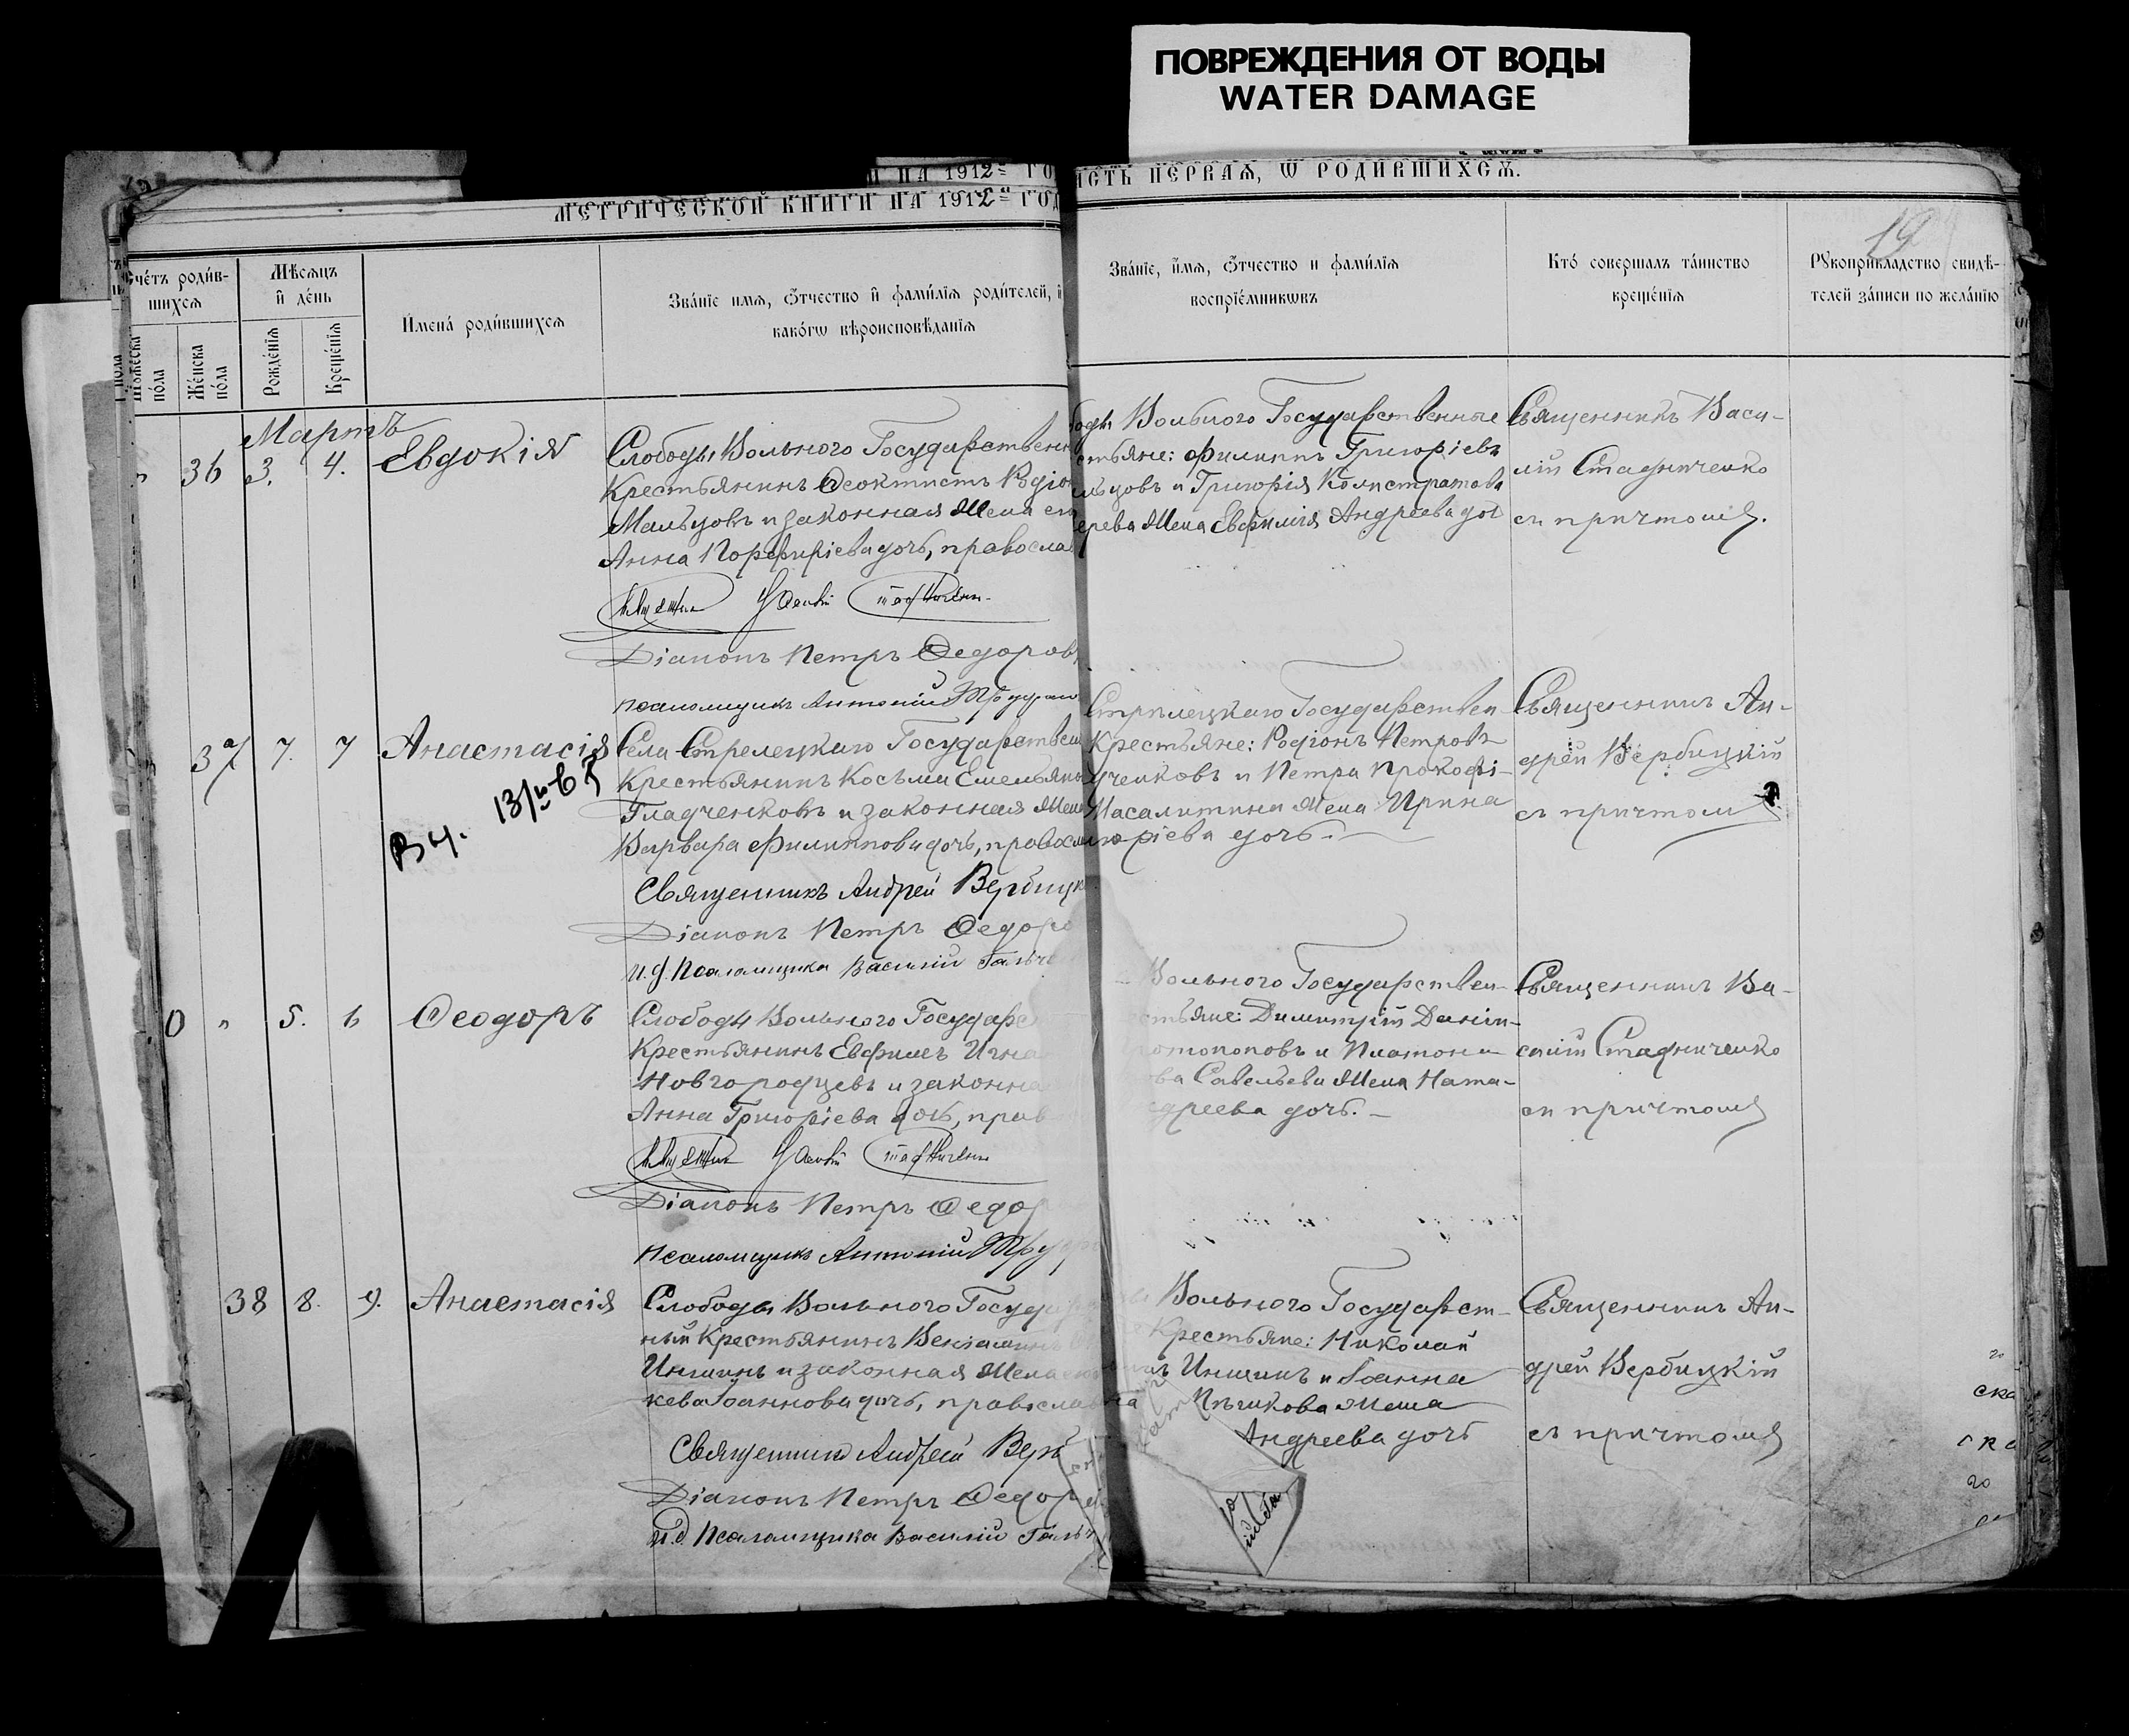 ПОВРЕЖДЕНИЯ ОТ ВОДЫ
WATER DAMAGE
НА 1912
МЕТРИЧЕСКОЙ КНИГИ НА 1912 ГОД
ПЕРВАЯ, Ѡ РОДИВШИХСЯ.
19
Счетъ родив-
шихся
Мужеска
пола
Женска
пола
Мѣсяцъ
и день
Рожденія
Крещенія
Имена родившихся
Званіе имя, отчество и фамилія родителей, и
какогѡ вѣроисповѣданія
Званіе, имя, отчество и фамилія
воспріемникѡвъ
Кто совершалъ таинство
крещенія
Рукоприкладство свидѣ-
телей записи по желанію
Мартъ
36 3. 4. Евдокія
Слободы Вольного Государственн
Крестьянинъ Ѳеоктистъ Родіон
Мальцовъ и законная жена его
Анна Порфиріева дочь, православ
Діаконъ Петръ Ѳедоров
Псаломщикъ Антоній
Вольного Государственные
стьяне: Филиппъ Григоріевъ
льцовъ и Григорія Калистратова
жена Евфимія Андреева доч
Священникъ Васи-
лій Стадниченко
съ причтомъ.
37 7. 7 Анастасія
Села Стрелецкаго Государствен
Крестьянинъ Косьма Емельян
Гладченковъ и законная жена
Варвара Филиппова дочь, правосл
Священникъ Андрей Вербицк
Діаконъ Петръ Ѳедоро
И.д. Псаломщика Василій Гальч
Стрѣлецкаго Государствен
Крестьяне: Родіонъ Петровъ
ченковъ и Петра Прокофі-
Масалитина жена Ирина
ріева дочь.
Священникъ Ан-
дрей Вербицкій
съ причтомъ
0 " 5. 6 Ѳеодоръ
Слободы Вольного Государс
Крестьянинъ Евфимъ Игна
Новгородцевъ и законна
Анна Григоріева дочь, прав
Діаконъ Петръ Ѳедор
Псаломщикъ Антоній
Вольного Государствен-
стьяне: Димитрій Даніи-
отопоповъ и Платона
ова Савельева жена Ната-
дреева дочь. -
Священникъ Ва-
силій Стадниченко
съ причтомъ
38 8. 9. Анастасія
Слободы Вольного Государ
ный Крестьянинъ Веніаминъ
Иншинъ и законная жена его
кева Іоаннова дочь, православна
Священникъ Андрей Верб
Діаконъ Петръ Ѳедор
И.д. Псаломщика Василій Галь
Вольного Государст-
Крестьяне: Николай
Иншинъ и Іоанна
Пѣшкова жена
Андреева дочь
Священникъ Ан-
дрей Вербицкій
съ причтомъ